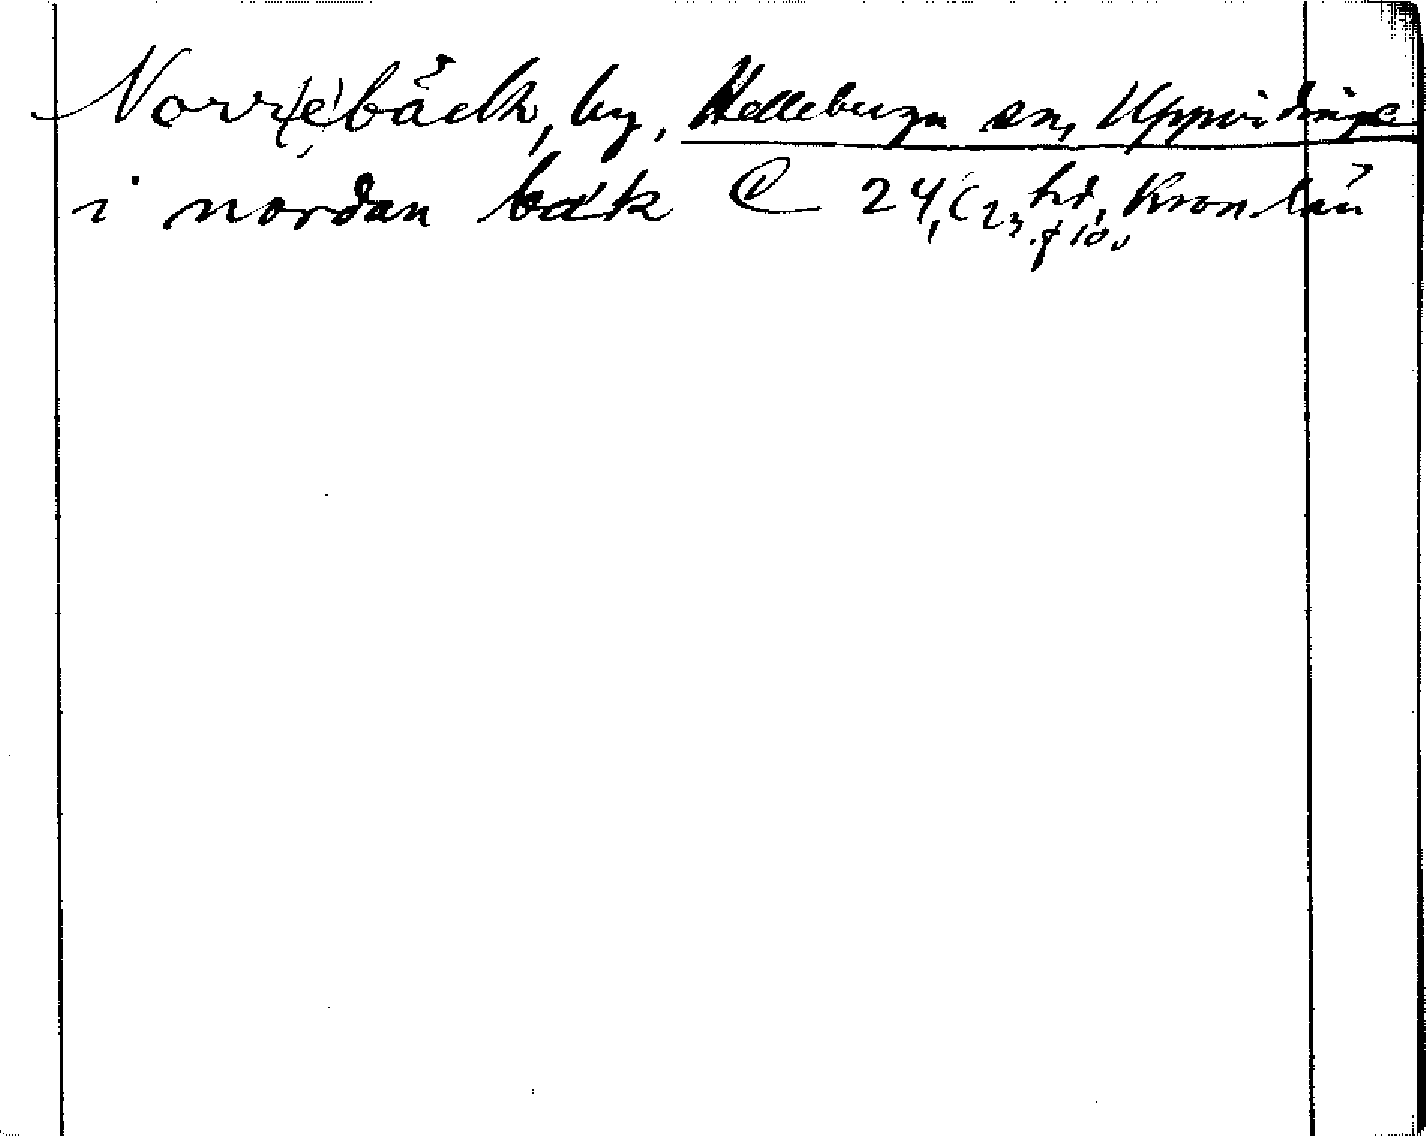 Norr(e)bäck, by, Helleberga sn, Uppvidinge
i nordan bäk C 24, C 23 hd, Kron. län
f 10v